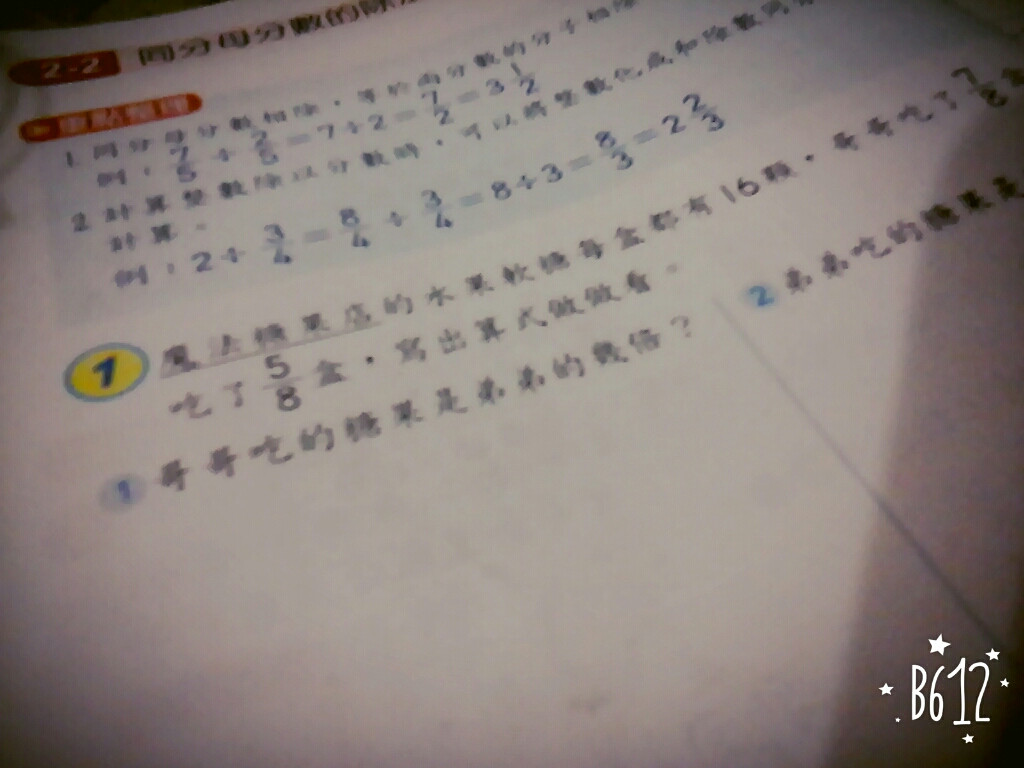 2-2 同分母分數的除法
重點整理
1 同分母分數相除,等於兩分數的分子相除
例:7/5÷2/5=7÷2=7/2=3 1/2
2 計算整數除以分數時,可以將整數化成和除數同分
計算。
例:2÷3/4=8/4÷3/4=8÷3=8/3=2 2/3
1 魔法糖果店的水果軟糖每盒都有16顆,哥哥吃了7/8盒
吃了5/8盒,寫出算式做做看。
1 哥哥吃的糖果是弟弟的幾倍?
2 弟弟吃的糖果是
B612